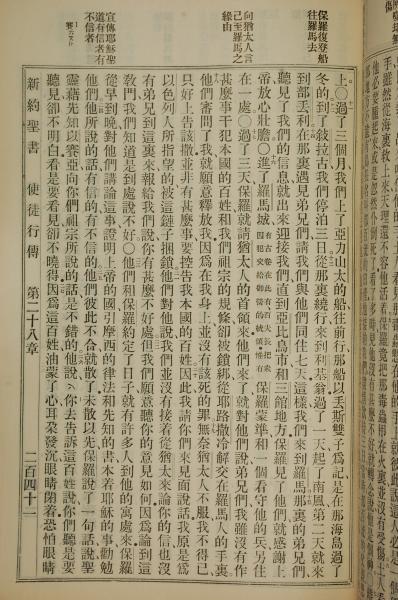 手雖然從海裏救上來天理還不容他活着保羅竟把那毒蟲甩在火裏並沒有受傷
保羅復登船往羅馬去
向猶太人言己至羅馬之緣由
宣傳耶穌聖道有信者有不信者
上○過了三個月我們上了亞力山太的船往前行那船以丟斯雙子爲記是在那海島過了
冬的到了敍拉古我們停泊三日從那裏繞行來到利基翁過了一天起了南風第二天就來
到部丟利在那裏遇見弟兄們請我們與他們同住七天這樣我們來到羅馬那裏的弟兄們
聽見了我們的信息就出來迎接我們直到亞比烏市和三館地方保羅見了他們就感謝上
帝放心壯膽○進了羅馬城有古卷在此有百夫長把衆囚犯交給御營的統領惟有保羅蒙準和一個看守他的兵另住
在一處○過了三天保羅就請猶太人的首領來他們來了就對他們說弟兄們我雖沒有作
甚麼事干犯本國的百姓和我們祖宗的規條卻被鎖綁從耶路撒冷解交在羅馬人的手裏
他們審問了我就願意釋放我因爲在我身上並沒有該死的罪無奈猶太人不服我不得已
只好上告該撒並非有甚麼事要控告我本國的百姓因此我請你們來見面說話我原是爲
以色列人所指望的被這鏈子捆鎖他們對他說我們並沒有接着從猶太來論你的信也沒
有弟兄到這裏來報給我們說你有甚麼不好處但我們願意聽你的意見如何因爲論到這
教門我們知道是到處說不好○他們和保羅約定了日子就有許多人到他的寓處來保羅
從早到晚對他們講論這事證明上帝的國引摩西的律法和先知的書本着耶穌的事勸勉
他們他所說的話有信的有不信的他們彼此不合就散了未散以先保羅說了一句話說聖
靈藉先知以賽亞向你們祖宗所說的話是不錯的他說你去告訴這百姓說你們聽是要
聽見卻不明白看是要看見卻不曉得因爲這百姓油蒙了心耳朶發沉眼睛閉着恐怕眼睛
新約聖書 使徒行傳 第二十八章 二百四十一